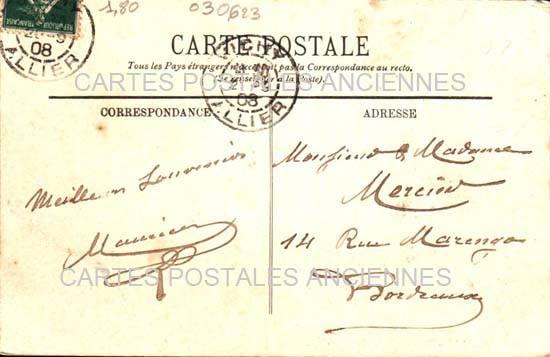 1,80
030623
REPUBLIQUE FRANÇAISE
08
ALLIER
CARTE POSTALE
Tous les Pays étrangers n'acceptent pas la Correspondance au recto.
(Se renseigner à la Poste).
VICHY
08
ALLIER
CARTES POSTALES ANCIENNES
CORRESPONDANCE
ADRESSE
Meilleur Souvenir
Maurice
Monsieur & Madame
Mercier
14 Rue Marengo
Bordeaux
CARTES POSTALES ANCIENNES